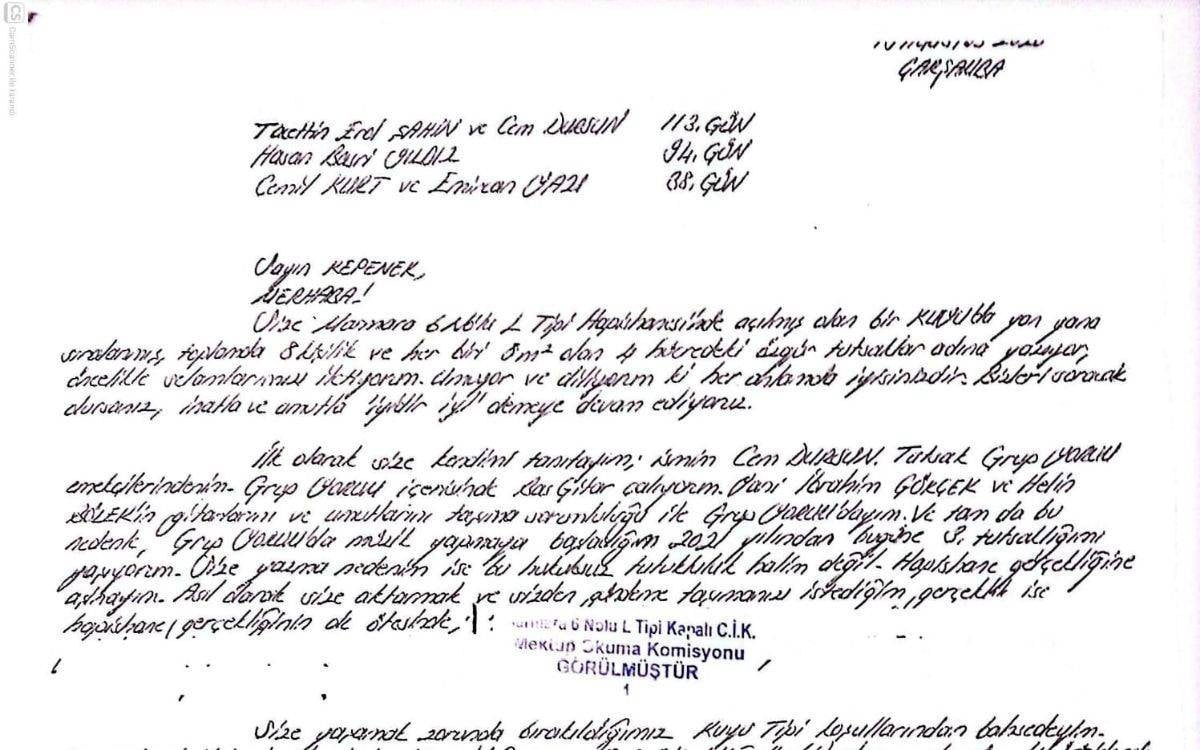 CS CamScanner ile tarandı
ÇARŞAMBA
Tacettin Erol ŞAHİN ve Cem DURSUN 113. GÜN
Hasan Basri YILDIZ 94. GÜN
Cemil KURT ve Emircan YAZI 88. GÜN
Sayın KEPENEK,
MERHABA!
Size Marmara 6 Nolu L Tipi Hapishanesinde açılmış olan bir KUYU'da yan yana
sıralanmış, toplamda 8 kişilik ve her biri 8m² olan 4 hücredeki özgür tutsaklar adına yazıyor,
öncelikle selamlarımızı iletiyorum. Umuyor ve diliyorum ki her anlamda iyisinizdir. Bizleri soracak
olursanız, inatla ve umutla "iyidir iyi" demeye devam ediyoruz.
İlk olarak size kendimi tanıtayım; ismim Cem DURSUN. Tutsak Grup YORUM
emekçilerindenim. Grup YORUM içerisinde Bas Gitar çalıyorum. Yani İbrahim GÖKÇEK ve Helin
BÖLEK'in gitarlarını ve umutlarını taşıma sorumluluğu ile Grup YORUM'dayım. Ve tam da bu
nedenle, Grup YORUM'da müzik yapmaya başladığım 2021 yılından bugüne 3. tutsaklığımı
yaşıyorum. Size yazma nedenim ise bu hukuksuz tutukluluk halim değil. Hapishane gerçekliğine
aşinayım. Asıl olarak size aktarmak ve sizden gündeme taşımanızı istediğim gerçeklik ise
hapishane gerçekliğinin de ötesinde,
Marmara 6 Nolu L Tipi Kapalı C.İ.K.
Mektup Okuma Komisyonu
GÖRÜLMÜŞTÜR
1
Size yaşamak zorunda bırakıldığımız Kuyu Tipi koşullarından bahsedeyim.